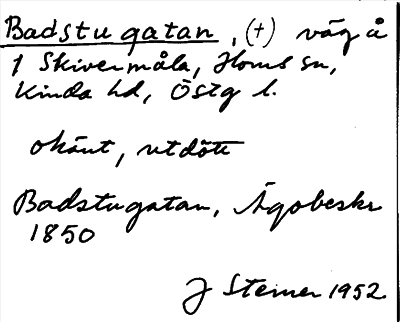 Badstugatan, (+) väg å
1 Skivermåla, Horns sn,
Kinda hd, Östg l.
okänt, utdött
Badstugatan, Ägobeskr
1850
J Sterner 1952